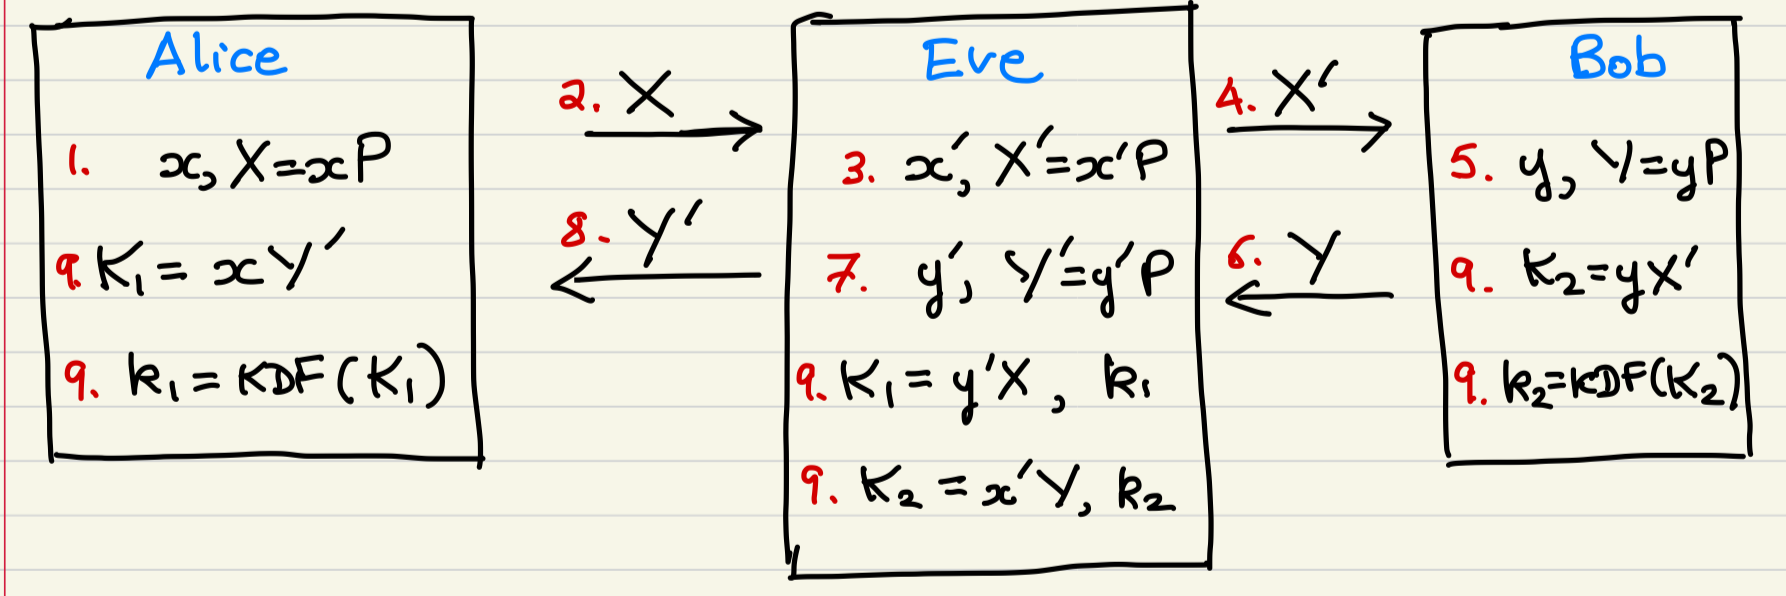 Alice
1. x, X=xP
9. K₁ = xY′
9. k₁ = KDF(K₁)
2. X
8. Y′
Eve
3. x′, X′=x′P
7. y′, Y′=y′P
9. K₁ = y′X, k₁
9. K₂ = x′Y, k₂
4. X′
6. Y
Bob
5. y, Y=yP
9. K₂=yX′
9. k₂=KDF(K₂)